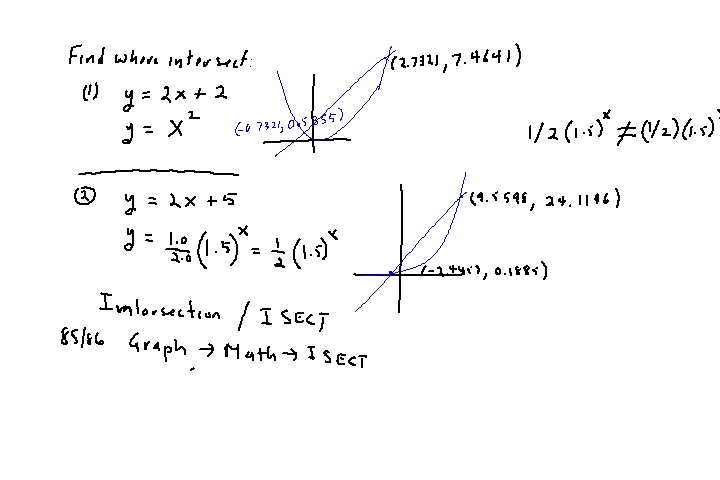 Find where intersect:
(1) y = 2x + 2
y = x²
(2.7321, 7.4641)
(-0.7321, 0.5355)
1/2(1.5)^x ≠ (1/2)(1.5)^x
(2) y = 2x + 5
y = 1.0/2.0 (1.5)^x = 1/2 (1.5)^x
(9.5598, 24.1196)
(-2.4057, 0.1885)
Intersection / ISECT
85/86 Graph → Math → ISECT